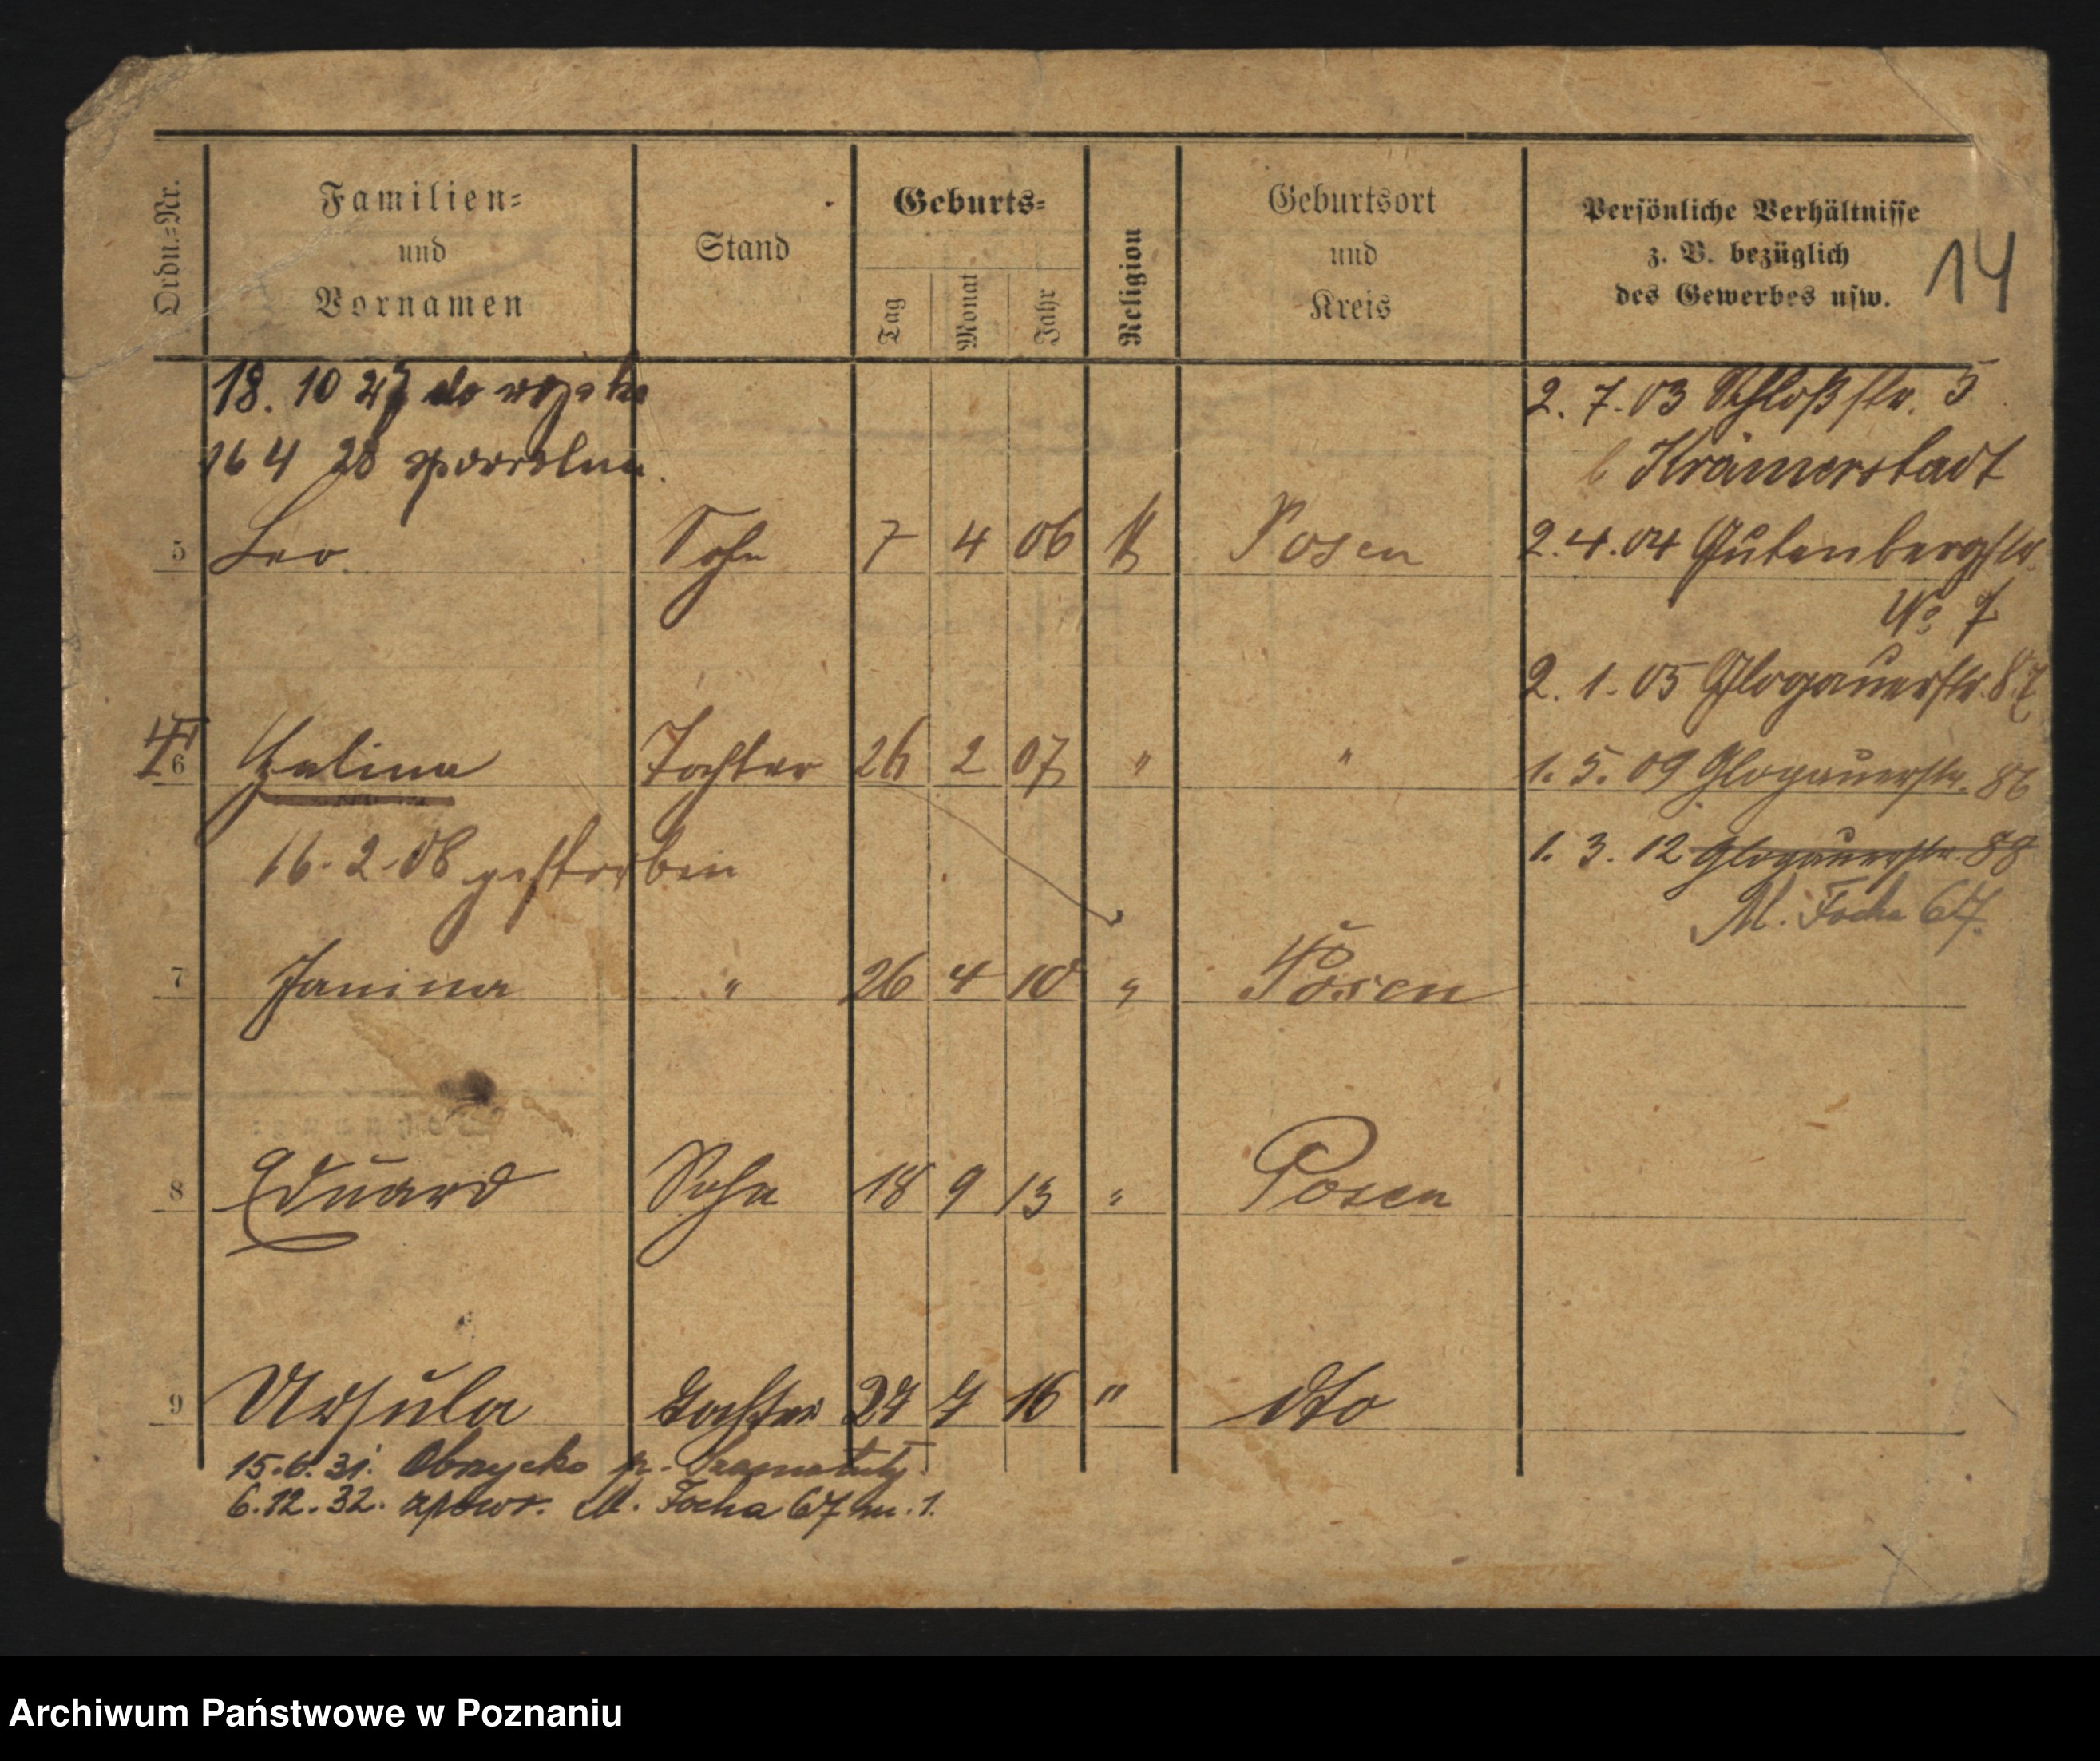 Ordn.-Nr.
Familien-
und
Vornamen
Stand
Geburts-
Tag
Monat
Jahr
Religion
Geburtsort
und
Kreis
Persönliche Verhältnisse
z. B. bezüglich
des Gewerbes usw.
14
18. 10 27 do wojska
16 4 28
2. 7. 03 Schloßstr. 5
Krämerstadt
5 Leo Sohn 7 4 06 K Posen
2. 4. 04 Gutenbergstr.
No 7
2. 1. 05 Glogauerstr. 87
6 Halina Tochter 26 2 07 " "
1. 5. 09 Glogauerstr. 86
16. 2. 08 gestorben
1. 3. 12 Glogauerstr. 88
M. Focha 67.
7 Janina " 26 4 10 " Posen
8 Eduard Sohn 18 9 13 " Posen
9 Ursula Tochter 27 7 16 " dto
15. 6. 31. Obrzycko p. Szamotuły
6. 12. 32. zpowr. M. Focha 67 m. 1.
Archiwum Państwowe w Poznaniu